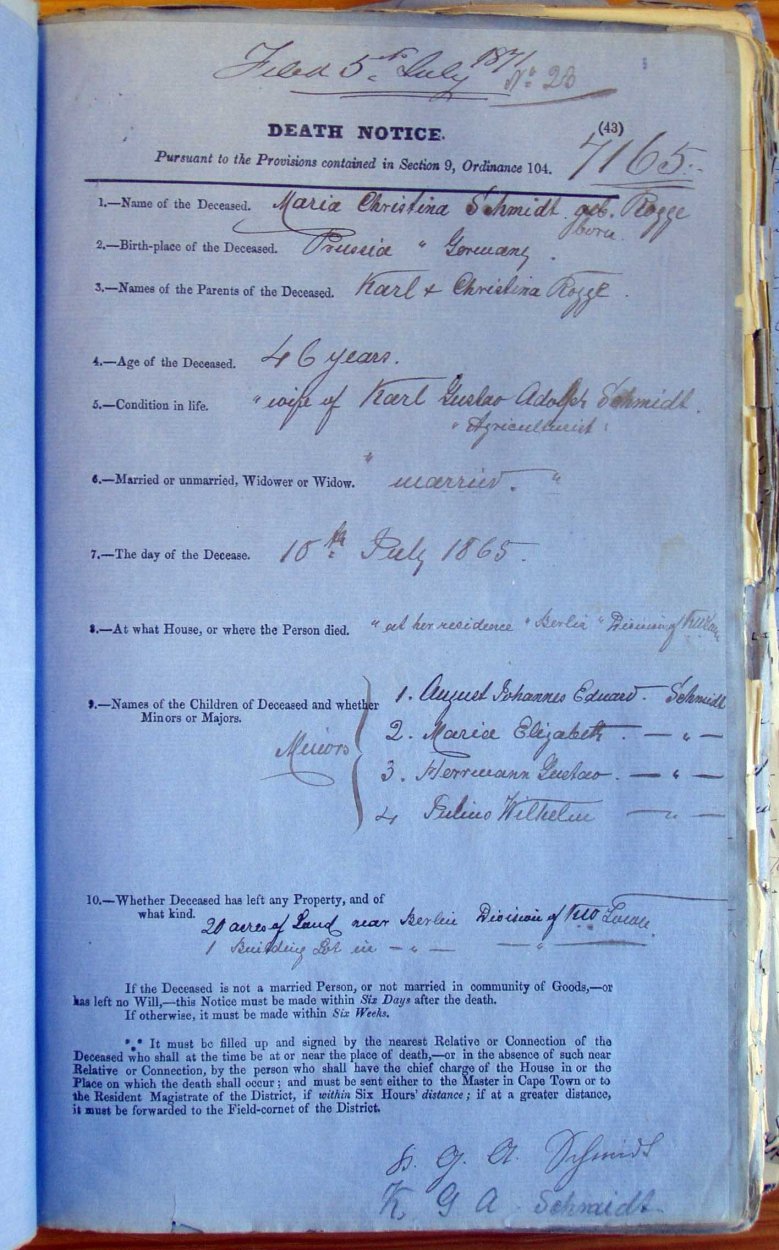 Filed 5th July 1871
No 23
DEATH NOTICE.
(43)
7165.
Pursuant to the Provisions contained in Section 9, Ordinance 104.
1.—Name of the Deceased. Maria Christina Schmidt geb. Rogge
born
2.—Birth-place of the Deceased. Prussia " Germany.
3.—Names of the Parents of the Deceased. Karl & Christina Rogge.
4.—Age of the Deceased. 46 years.
5.—Condition in life. " wife of Karl Gustav Adolph Schmidt.
" Agriculturist "
6.—Married or unmarried, Widower or Widow. " married. "
7.—The day of the Decease. 10th July 1865.
8.—At what House, or where the Person died. " at her residence " Berlin " Division of
9.—Names of the Children of Deceased and whether
Minors or Majors.
Minors
1. August Johannes Eduard. Schmidt
2. Maria Elizabeth. — " —
3. Herrmann Gustav. — " —
4 Julius Wilhelm — " —
10.—Whether Deceased has left any Property, and of
what kind. 20 acres of Land near Berlin Division of
1 Building Lot in — " — — " —
If the Deceased is not a married Person, or not married in community of Goods,—or
has left no Will,—this Notice must be made within Six Days after the death.
If otherwise, it must be made within Six Weeks.
*** It must be filled up and signed by the nearest Relative or Connection of the
Deceased who shall at the time be at or near the place of death,—or in the absence of such near
Relative or Connection, by the person who shall have the chief charge of the House in or the
Place on which the death shall occur; and must be sent either to the Master in Cape Town or to
the Resident Magistrate of the District, if within Six Hours' distance; if at a greater distance,
it must be forwarded to the Field-cornet of the District.
K. G. A. Schmidt
K G A Schmidt